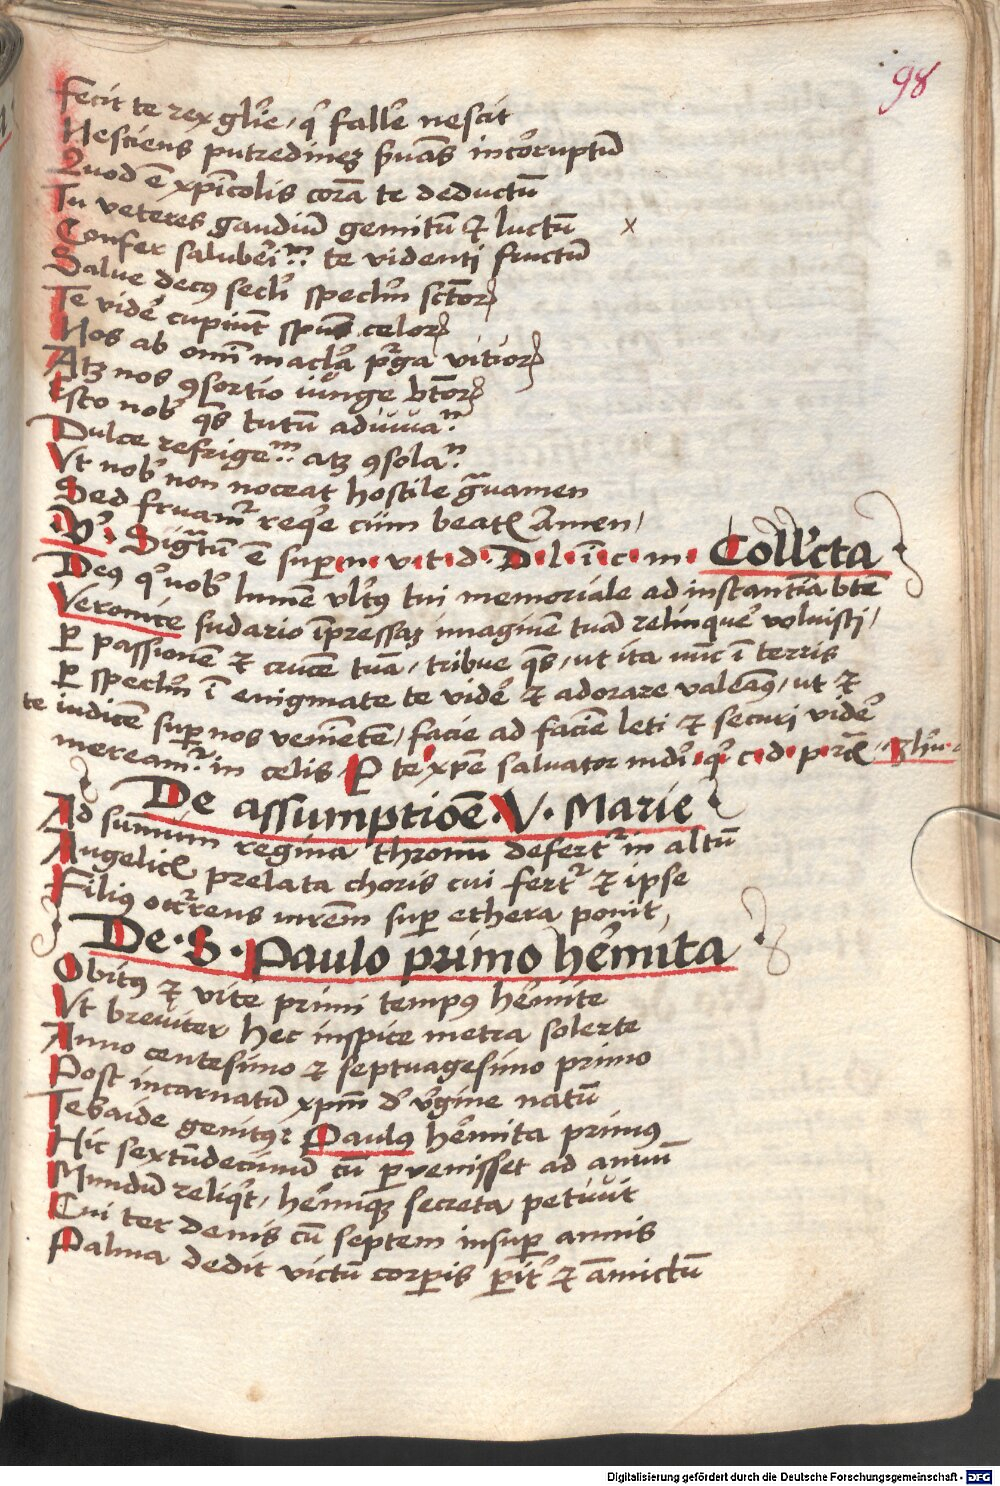 98
Fecit te rex gl'ie, q' fall'e nescit
Nesciens putredinez s'uās incōruptū
Quod ē xp̄icolis corā te deductū
Tu veteres gaudiū gemitū et luctū x
Confer saluber̄i.m te videnti fructū
Salue decꝰ secl'i specl'm sct̄oꝝ
Te vide' cupiūt sp̄us celoꝝ
Nos ab omī macl'a p'ga vitioꝝ
Atqꝫ nos ꝯsortio iūnge bt̄oꝝ
Esto nob' q̄s tutū adiuua.n
Dulce refrige.m atqꝫ ꝯsola.n
Vt nob' non noceat hostile g̃uamen
Sed fruam' req'e cum beatꝭ Amen,
V'. Sig̃tū ē super n. v. t. d. D. l. ī. c. m. Coll'cta
Deꝰ q' nob' lumē vl'tꝰ tui memoriale ad instantiā bt̄e
Veronice sudario īpressaꝫ imaginē tuā relinque' voluisti,
ꝑ passionē et crucē tuā, tribue q̄s, ut ita nūc ī terris
ꝑ specl'm ī enigmate te vide' et adorare valeāꝰ, ut et
te iudicē suꝑ nos veniētē, facie ad faciē leti et securi vide'
meream' in celis P te xp̄e saluator mūdi, q' c. d. p. r̄c
De assumptiōe. V. Marie
Ad summum regina thronū defert' in altū
Angelicꝭ prelata choris cui fert' et ipse
Filiꝰ occ'rens mr̄em suꝑ ethera ponit,
De. S. Paulo primo he'mita
Obitꝰ et vite primi tempꝰ he'mite
Vt breuiter hec inspice metra solerte
Anno centesimo et septuagesimo primo
Post incarnatū xp̄m d' v'gine natū
Tebaide genitꝰ: Paulꝰ he'mita primꝰ
Hic sextūdecimū cū ꝑvenisset ad annū
Mundū reliq't, he'miqꝫ secreta petiuit
Cui ter denis cū septem insuꝑ annis
Palma dedit victū corꝑis ꝑit' et amictū
Digitalisierung gefördert durch die Deutsche Forschungsgemeinschaft - DFG